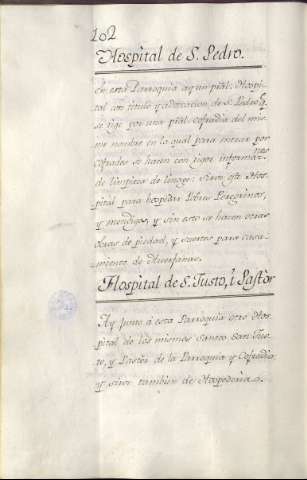 202
Hospital de S. Pedro.
En esta Parroquia ay un pial. Hospi-
tal con titulo y advocacion de S. Pedro, q.
se rige por una pial. Cofradia del mis-
mo nombre en la qual para entrar por
Cofrades se hacen con rigor informaz.nes
de limpieza de linage: Sirve este Hos-
pital para hospedar Pobres Peregrinos,
y mendigos, y sin esto se hacen otras
obras de piedad, y suertes para casa-
miento de Huerfanas.
Hospital de S. Justo, i Pastor
Ay junto á esta Parroquia otro Hos-
pital de los mismos Santos San Jus-
to, y Pastor de la Parroquia y Cofradia,
y sirve tambien de Hospederia.